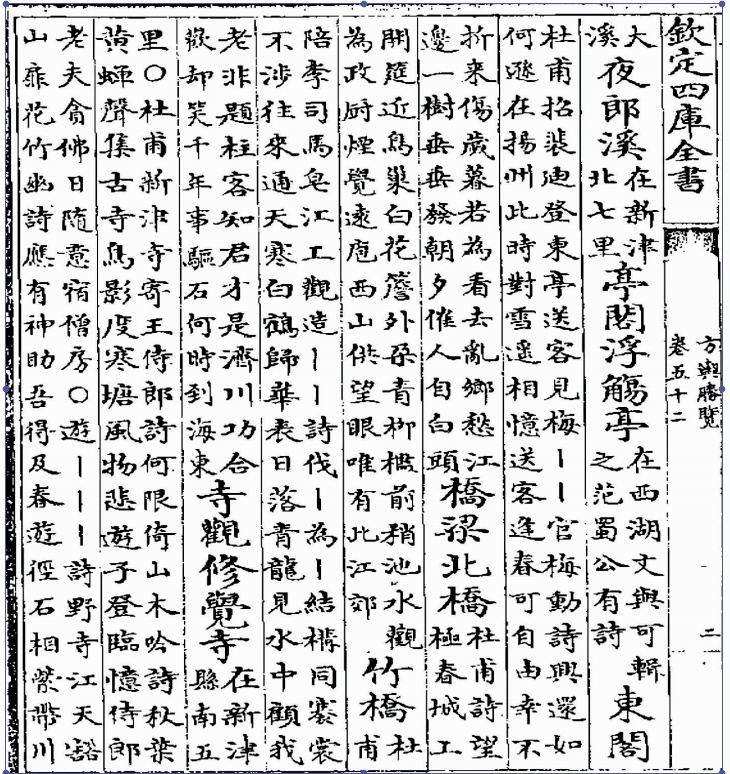 欽定四庫全書
方輿勝覽
卷五十二
二
大
溪
夜郎溪
在新津
北七里
亭閣浮觴亭
在西湖文與可輯
之范蜀公有詩
東閣
杜甫招裴迪登東亭送客見梅丨丨官梅動詩興還如
何遜在揚州此時對雪遥相憶送客逢春可自由幸不
折來傷歲暮若為看去亂鄉愁江
邊一樹垂垂發朝夕催人自白頭
橋梁北橋
杜甫詩望
極春城工
開筵近鳥巢白花簷外朶青柳檻前稍池水觀
為政厨煙覺遠庖西山供望眼唯有此江郊
竹橋
杜
甫
陪李司馬皂江工觀造丨丨詩伐丨為丨結構同褰裳
不涉往來通天寒白鶴歸華表日落青龍見水中顧我
老非題柱客知君才是濟川功合
歡却笑千年事驅石何時到海東
寺觀修覺寺
在新津
縣南五
里○杜甫新津寺寄王侍郎詩何限倚山木吟詩秋葉
黃蟬聲集古寺鳥影度寒塘風物悲遊子登臨憶侍郎
老夫貪佛日隨意宿僧房○遊丨丨丨詩野寺江天豁
山扉花竹幽詩應有神助吾得及春遊徑石相縈帶川